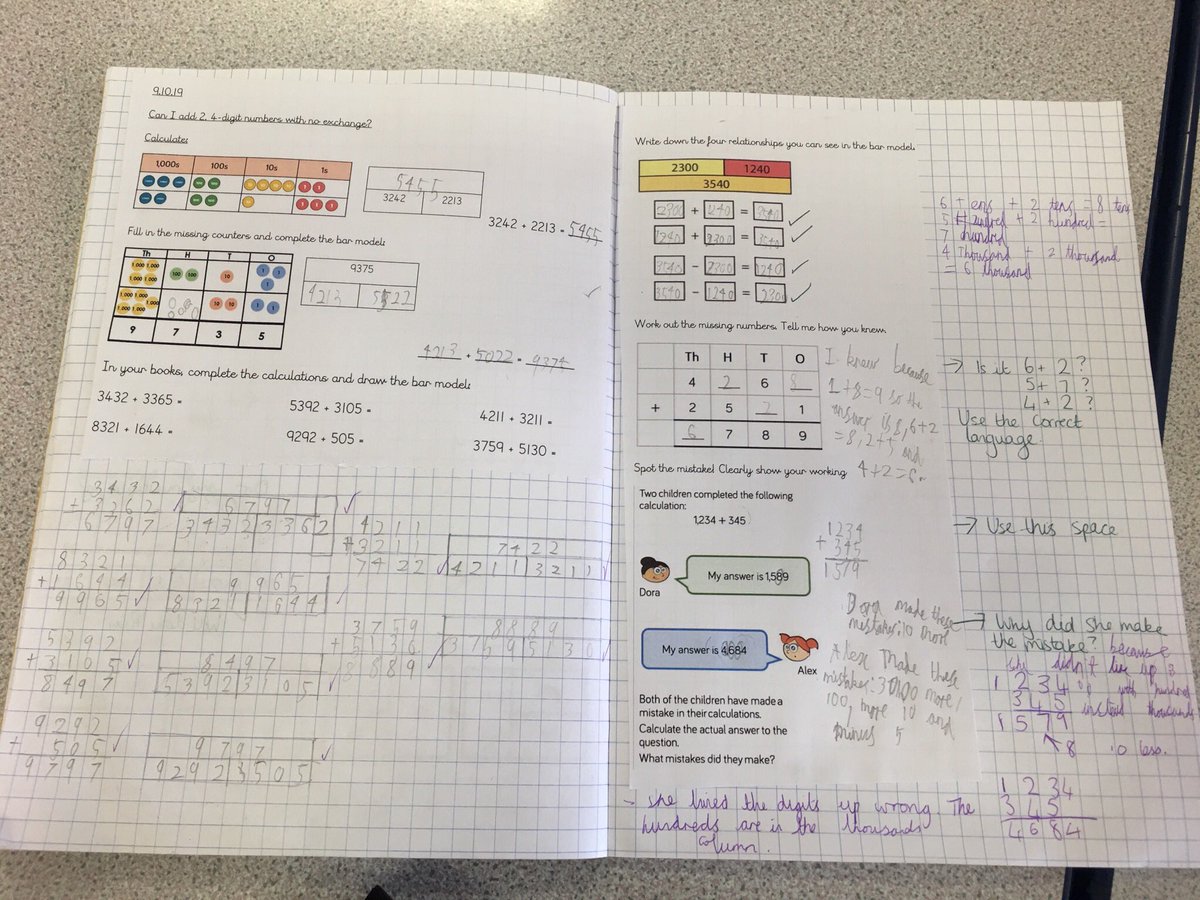 9.10.19
Can I add 2, 4-digit numbers with no exchange?
Calculate:
1,000s 100s 10s 1s
5455
3242 2213
3242 + 2213 = 5455
Fill in the missing counters and complete the bar model:
Th H T O
1,000 1,000 100 100 10 1 1
1,000 1,000 1
1,000 1,000 10 10 1 1
1,000 1,000 1,000
9 7 3 5
9375
4213
4213 + 5022 =
In your books, complete the calculations and draw the bar model:
3432 + 3365 = 5392 + 3105 = 4211 + 3211 =
8321 + 1644 = 9292 + 505 = 3759 + 5130 =
3432
6797
6797
4211
+3211
7422
7422
4211 3211
8321
+1644
9965
9965
8321 1644
3759
8889
8889
5392
+3105
8497
8497
5392 3105
9292
+505
9797
9797
9292 505
Write down the four relationships you can see in the bar model:
2300 1240
3540
2300 + 1240 = 3540
+ =
3540 - 2300 = 1240
3540 - 1240 =
Work out the missing numbers. Tell me how you know.
Th H T O
4 2 6 8
+ 2 5 2 1
6 7 8 9
I knew because
1+8=9 so the
answer is 8, 6+2
=8, 2+5 and
4+2=6.
Spot the mistake! Clearly show your working
Two children completed the following
calculation:
1,234 + 345
1234
+ 345
1579
My answer is 1,589
Dora
My answer is 4,684
Alex
Dora made these
mistakes: 10 more
Alex made these
mistakes:
100 more 10 and
minus 5
Both of the children have made a
mistake in their calculations.
Calculate the actual answer to the
question.
What mistakes did they make?
6 tens + 2 tens = 8 tens
5 hundred + 2 hundred =
7 hundred
4 thousand + 2 thousand
= 6 thousand
→ Is it 6 + 2 ?
4 + 2 ?
Use the correct
language.
→ Use this space
→ Why did she make
the mistake? because
she didn't line up
with hundred
instead thousands
1234
345
1579
8 10 less.
1 2 34
3 4 5
4 6 8 4
- she lined the digits up wrong. The
hundreds are in the thousands
column.